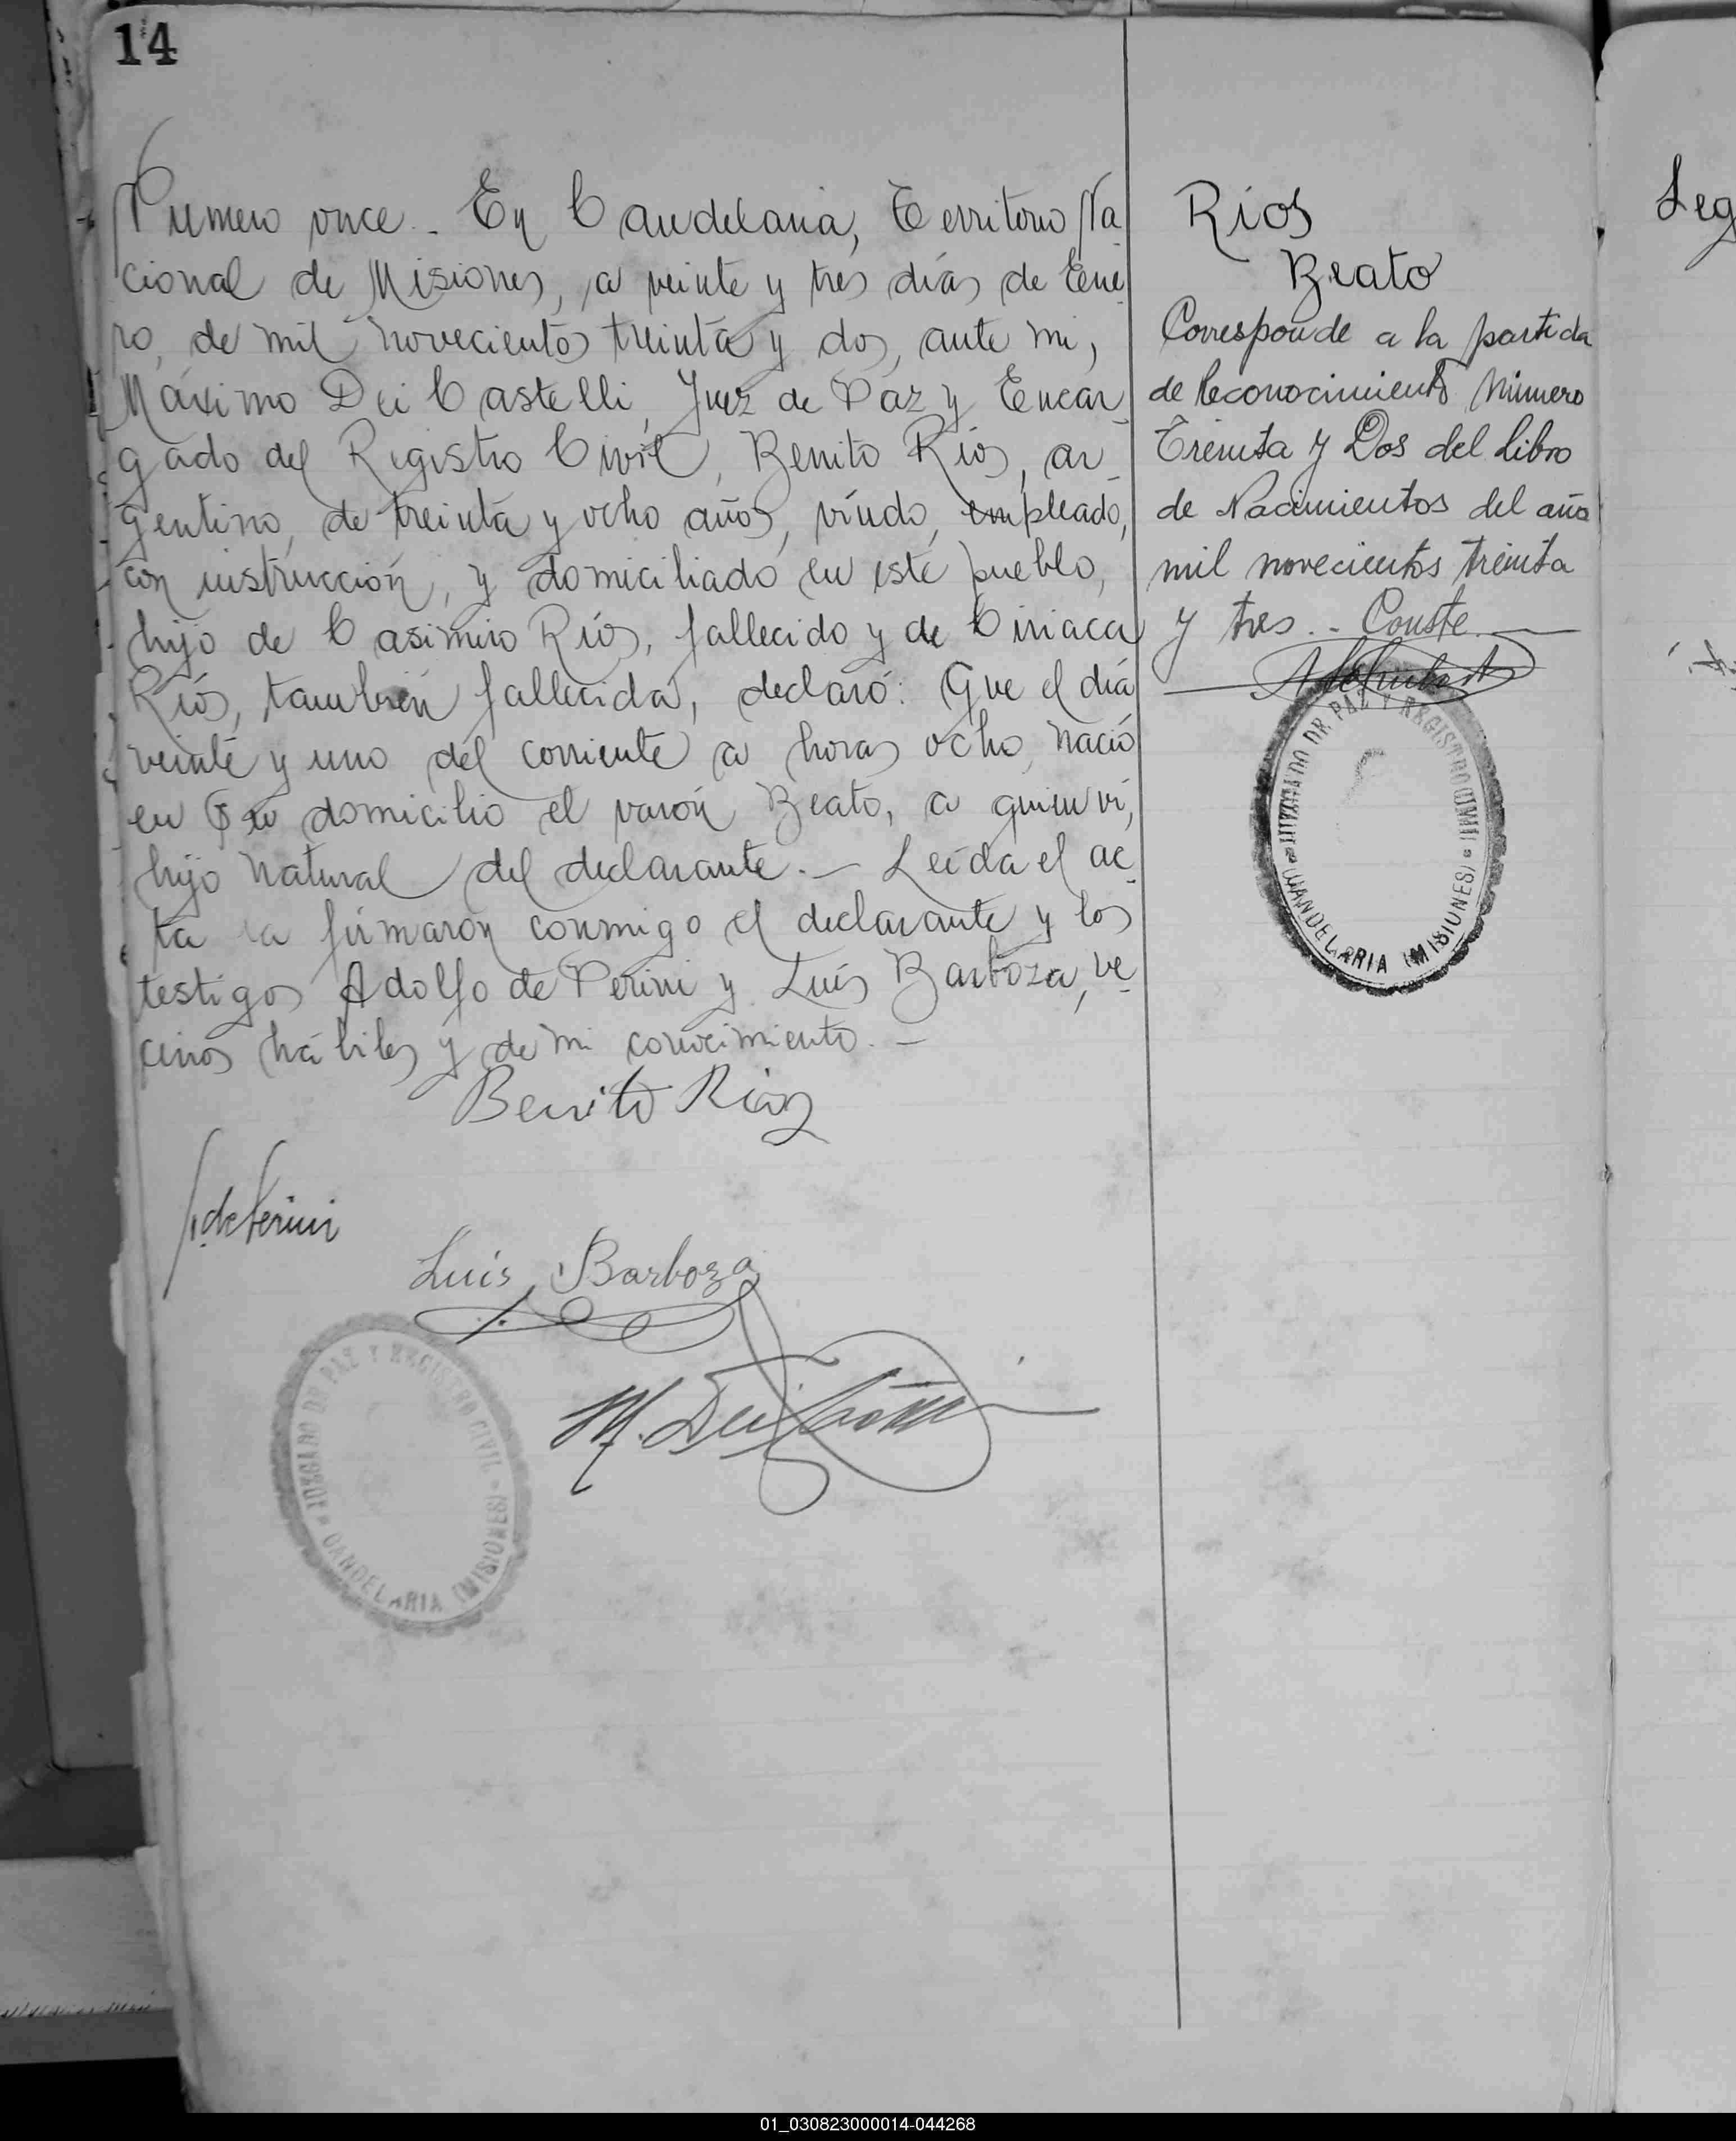 14
Número once.- En Candelaria, Territorio Na-
cional de Misiones, a veinte y tres días de Ene-
ro, de mil novecientos treinta y dos, ante mi,
Máximo Dei Castelli, Juez de Paz y Encar-
gado del Registro Civil, Benito Ríos, ar-
gentino, de treinta y ocho años, viudo, empleado,
con instrucción, y domiciliado en este pueblo,
hijo de Casimiro Ríos, fallecido y de Ciriaca
Ríos, también fallecida, declaró: Que el día
veinte y uno del corriente a horas ocho, nació
en su domicilio el varón Beato, a quien ví,
hijo natural del declarante.- Leída el ac-
ta la firmaron conmigo el declarante y los
testigos Adolfo de Perini y Luis Barboza, ve-
cinos hábiles y de mi conocimiento.-
Benito Rios
dePerini
Luis Barboza
M. Dei Castelli
JUZGADO DE PAZ Y REGISTRO CIVIL
CANDELARIA (MISIONES)
Rios
Beato
Corresponde a la partida
de Reconocimiento Número
Treinta y Dos del Libro
de Nacimientos del año
mil novecientos treinta
y tres.- Conste.-
JUZGADO DE PAZ Y REGISTRO CIVIL
CANDELARIA (MISIONES)
Leg
01_030823000014-044268